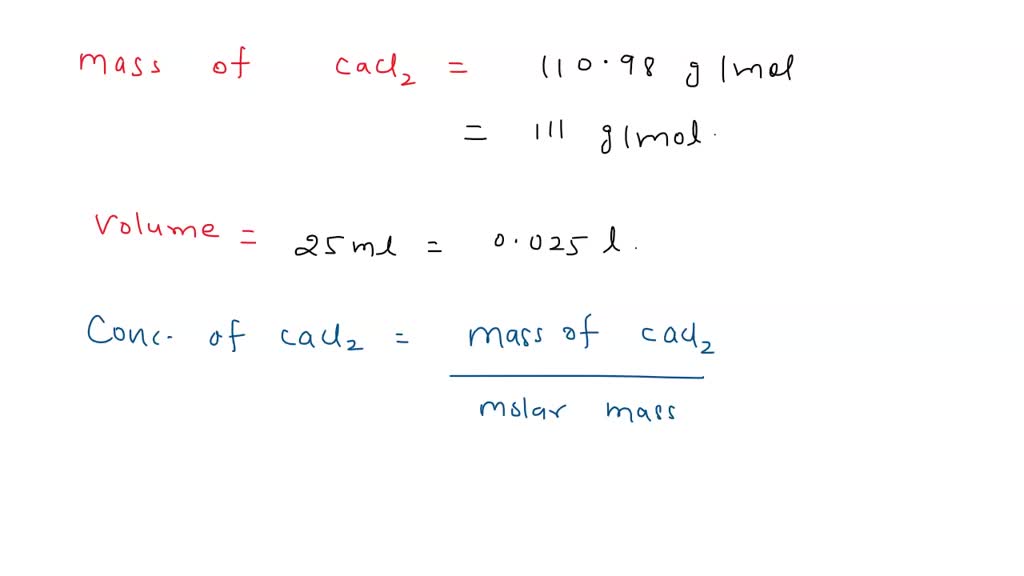 mass of cacl₂ = 110.98 g/mol
= 111 g/mol.
Volume = 25ml = 0.025 l.
Conc. of cacl₂ = mass of cacl₂
molar mass